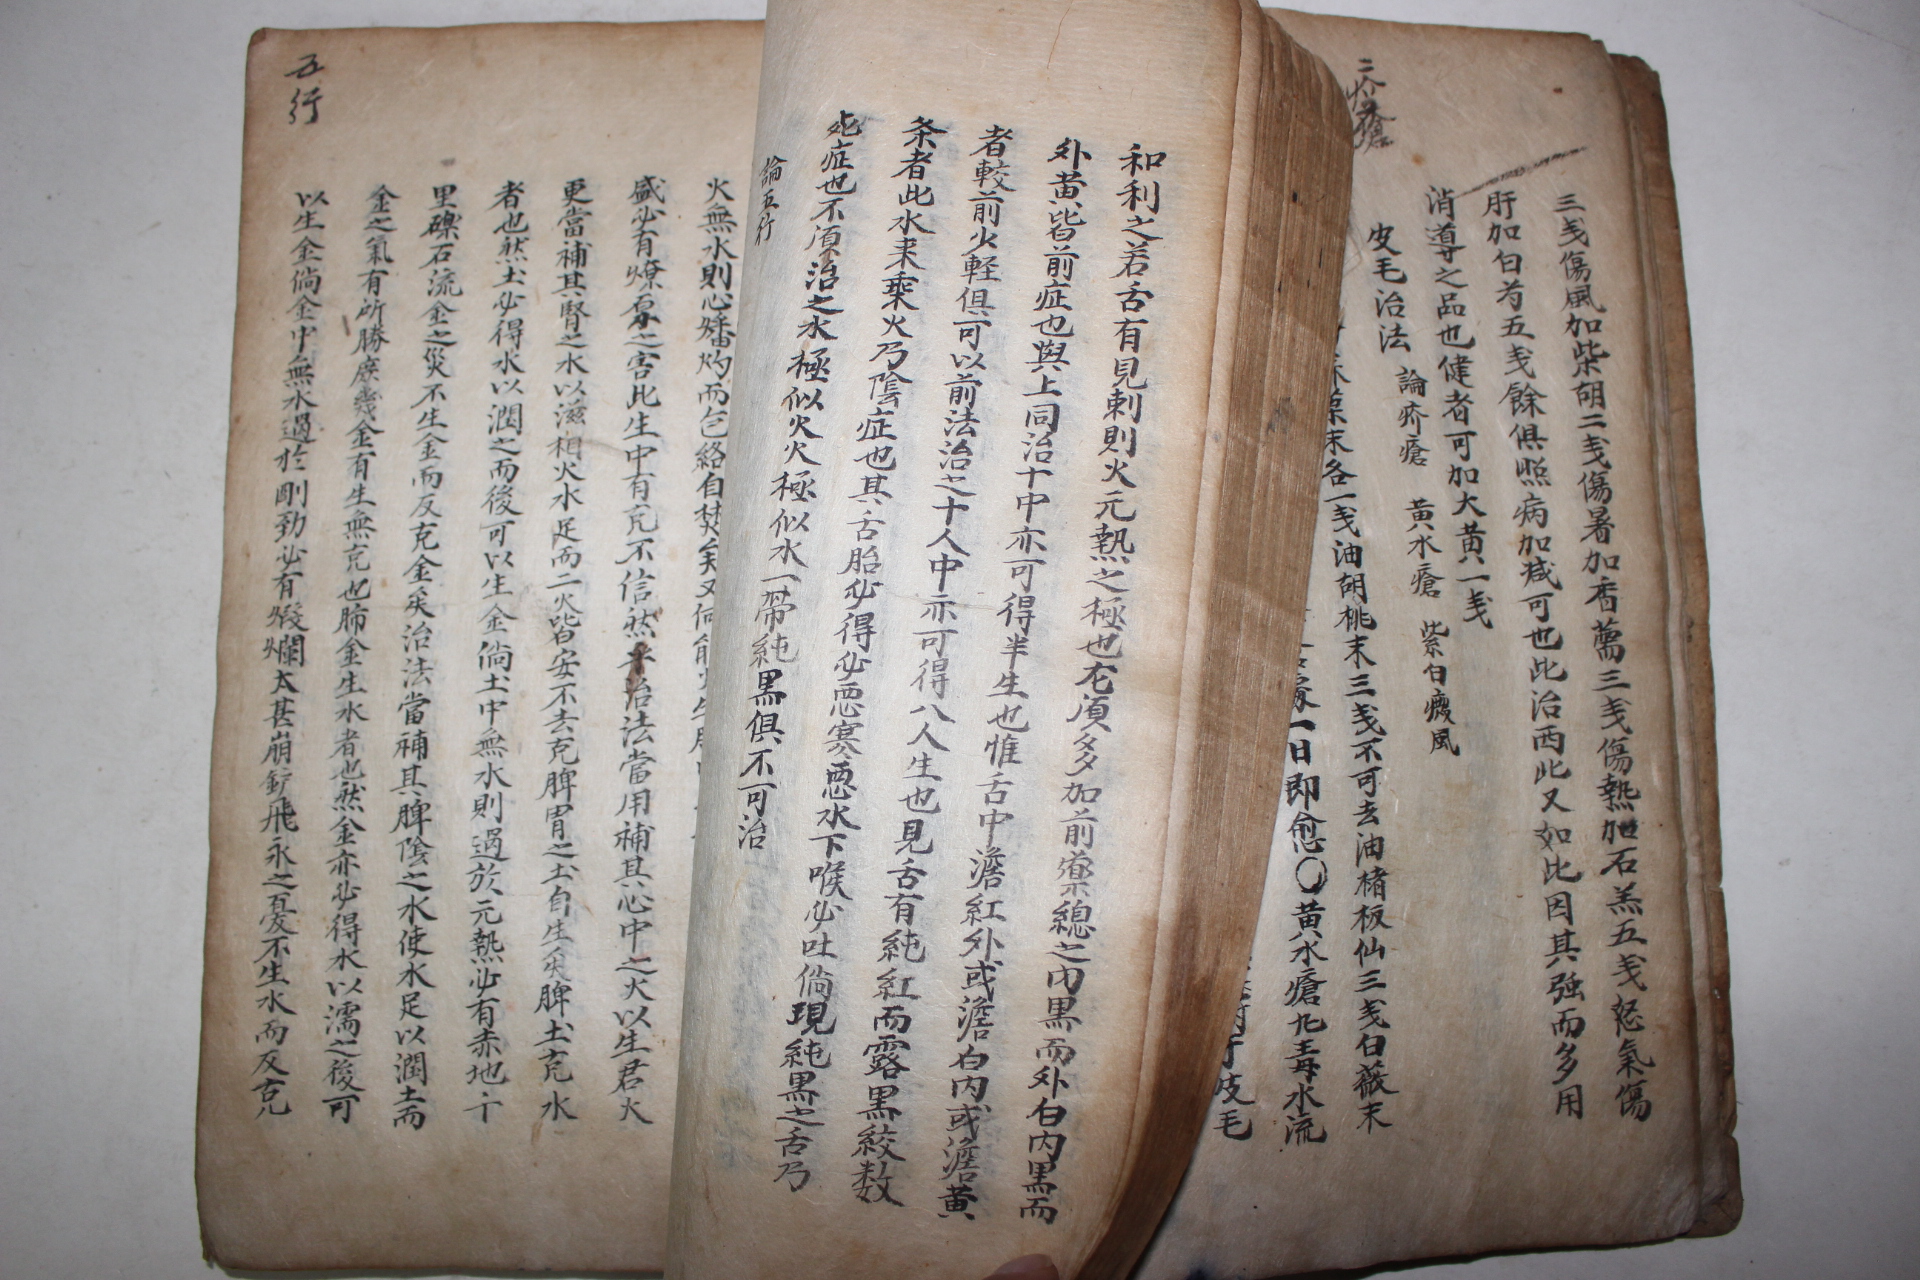 三戔傷風加柴胡二戔傷暑加香薷三戔傷熱加石羔五戔怒氣傷
肝加白芍五戔餘俱照病加减可也此治西此又如比因其強而多用
消導之品也健者可加大黄一戔
皮毛治法 論疥瘡 黄水瘡 紫白癜風
末各一戔油胡桃末三戔不可去油楮板仙三戔白薇末
一日即愈〇黄水瘡九毒水流
皮毛
和利之若舌有見刺則火元熱之極也尤須多加前藥總之内黒而外白内黒而
外黄皆前症也與上同治十中亦可得半生也惟舌中澹紅外或澹白内或澹黄
者較前火軽俱可以前法治之十人中亦可得八人生也見舌有純紅而露黒紋数
条者此水来乗火乃陰症也其舌胎必得必悪寒悪水下喉必吐倘現純黒之舌乃
死症也不須治之水極似火火極似水一帶純黒俱不可治
論五行
火無水則心燔灼而包絡自焚矣又何能火生
盛必有燎原之害此生中有克不信然乎治法當用補其心中之火以生君火
更當補其腎之水以滋相火水足而二火皆安不去克脾胃之土自生矣脾土克水
者也然土必得水以潤之而後可以生金倘土中無水則過於元熱必有赤地千
里礫石流金之災不生金而反克金矣治法當補其脾陰之水使水足以潤土而
金之氣有所勝庶幾金有生無克也肺金生水者也然金亦必得水以濡之後可
以生金倘金中無水過於剛勁必有煆爛太甚崩釯飛永之憂不生水而反克
五行
二疥瘡